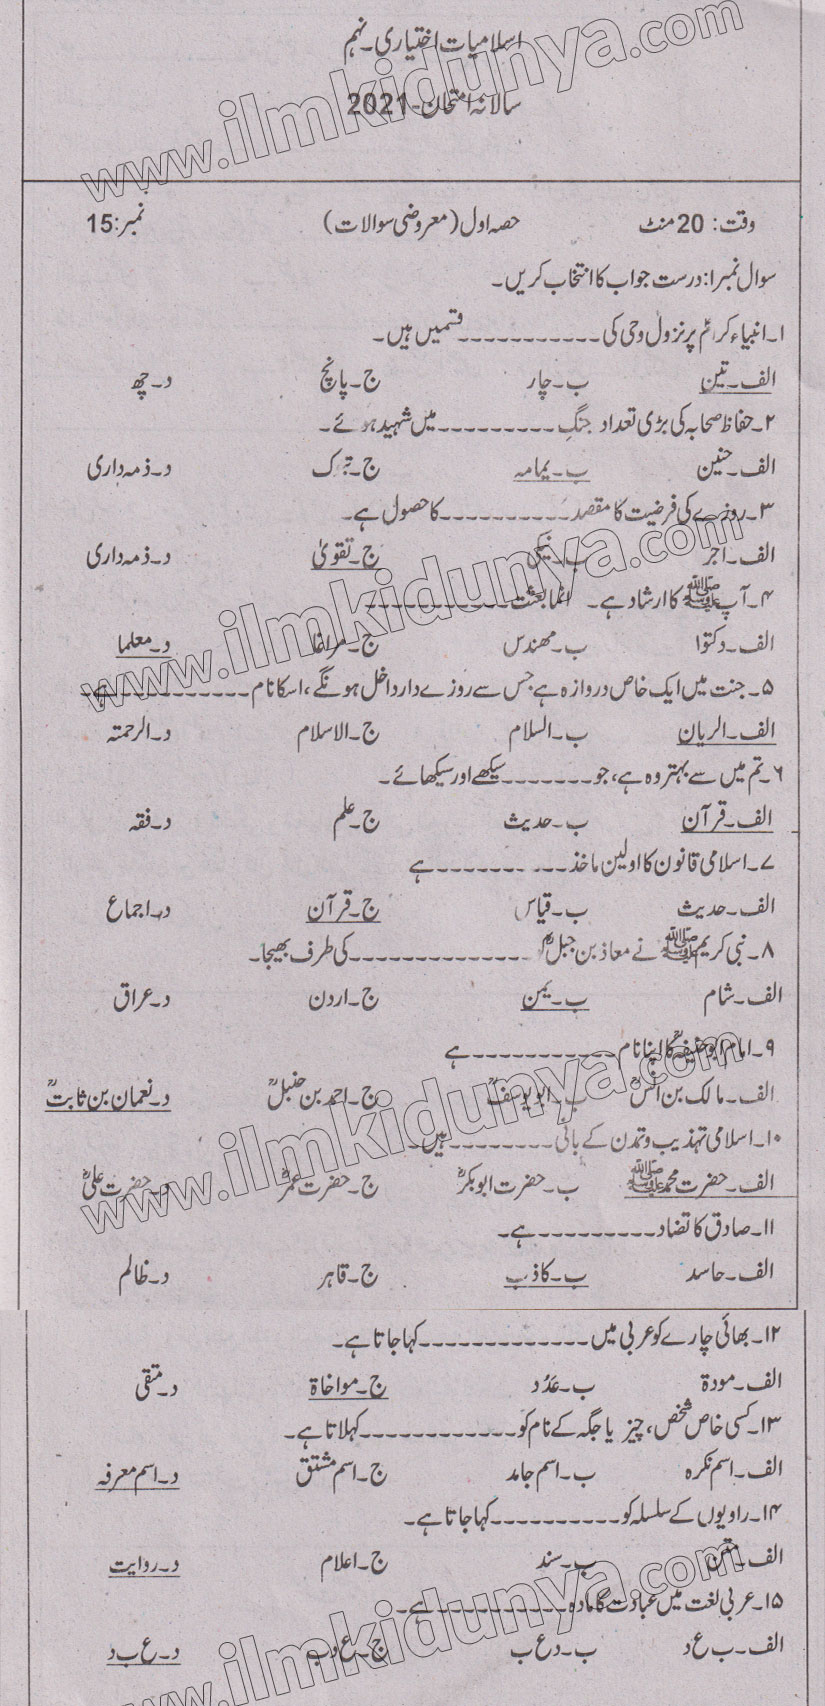 اسلامیات اختیاری۔ نہم
سالانہ امتحان۔2021
وقت: 20 منٹ حصہ اول (معروضی سوالات) نمبر:15
سوال نمبر۱: درست جواب کا انتخاب کریں۔
۱۔ انبیاء کرامؑ پر نزول وحی کی ۔۔۔۔۔۔۔۔۔۔۔ قسمیں ہیں۔
الف۔تین ب۔چار ج۔پانچ د۔چھ
۲۔ حفاظ صحابہ کی بڑی تعداد جنگِ ۔۔۔۔۔۔۔۔۔ میں شہید ہوئے۔
الف۔حنین ب۔یمامہ ج۔تبوک د۔ذمہ داری
۳۔ روزے کی فرضیت کا مقصد ۔۔۔۔۔۔۔۔۔۔ کا حصول ہے۔
الف۔اجر ب۔نیکی ج۔تقویٰ د۔ذمہ داری
۴۔ آپ ﷺ کا ارشاد ہے۔ انما بعثت ۔۔۔۔۔۔۔۔۔۔۔
الف۔دکتوا ب۔مھندس ج۔مراغا د۔معلما
۵۔ جنت میں ایک خاص دروازہ ہے جس سے روزے دار داخل ہونگے، اسکا نام ۔۔۔۔۔۔۔۔۔۔۔ ہے۔
الف۔الریان ب۔السلام ج۔الاسلام د۔الرحمتہ
۶۔ تم میں سے بہتر وہ ہے، جو ۔۔۔۔۔۔۔ سیکھے اور سیکھائے۔
الف۔قرآن ب۔حدیث ج۔علم د۔فقہ
۷۔ اسلامی قانون کا اولین ماخذ ۔۔۔۔۔۔۔۔۔۔ ہے
الف۔حدیث ب۔قیاس ج۔قرآن د۔اجماع
۸۔ نبی کریم ﷺ نے معاذ بن جبلؓ ۔۔۔۔۔۔۔۔۔۔۔۔۔۔ کی طرف بھیجا۔
الف۔شام ب۔یمن ج۔اردن د۔عراق
۹۔ امام ابو حنیفہؒ کا اپنا نام ۔۔۔۔۔۔۔۔۔۔۔ ہے
الف۔مالک بن انسؒ ب۔ابو یوسفؒ ج۔احمد بن حنبلؒ د۔نعمان بن ثابتؒ
۱۰۔ اسلامی تہذیب و تمدن کے بانی ۔۔۔۔۔۔۔۔ ہیں۔
الف۔حضرت محمد ﷺ ب۔حضرت ابوبکرؓ ج۔حضرت عمرؓ د۔حضرت علیؓ
۱۱۔ صادق کا تضاد ۔۔۔۔۔۔۔۔۔۔ ہے۔
الف۔حاسد ب۔کاذب ج۔قاہر د۔ظالم
۱۲۔ بھائی چارے کو عربی میں ۔۔۔۔۔۔۔۔۔۔۔۔۔ کہا جاتا ہے۔
الف۔مودۃ ب۔عَدُد ج۔مواخاۃ د۔متقی
۱۳۔ کسی خاص شخص، چیز یا جگہ کے نام کو ۔۔۔۔۔۔۔۔۔۔۔۔ کہلاتا ہے۔
الف۔اسم نکرہ ب۔اسم جامد ج۔اسم مشتق د۔اسم معرفہ
۱۴۔ راویوں کے سلسلہ کو ۔۔۔۔۔۔۔۔۔۔ کہا جاتا ہے۔
الف۔متن ب۔سند ج۔اعلام د۔روایت
۱۵۔ عربی لغت میں عبادت کا مادہ ۔۔۔۔۔۔۔۔۔۔ ہے۔
الف۔ب ع د ب۔د ع ب ج۔ع و ب د۔ع ب د
www.ilmkidunya.com
www.ilmkidunya.com
www.ilmkidunya.com
www.ilmkidunya.com